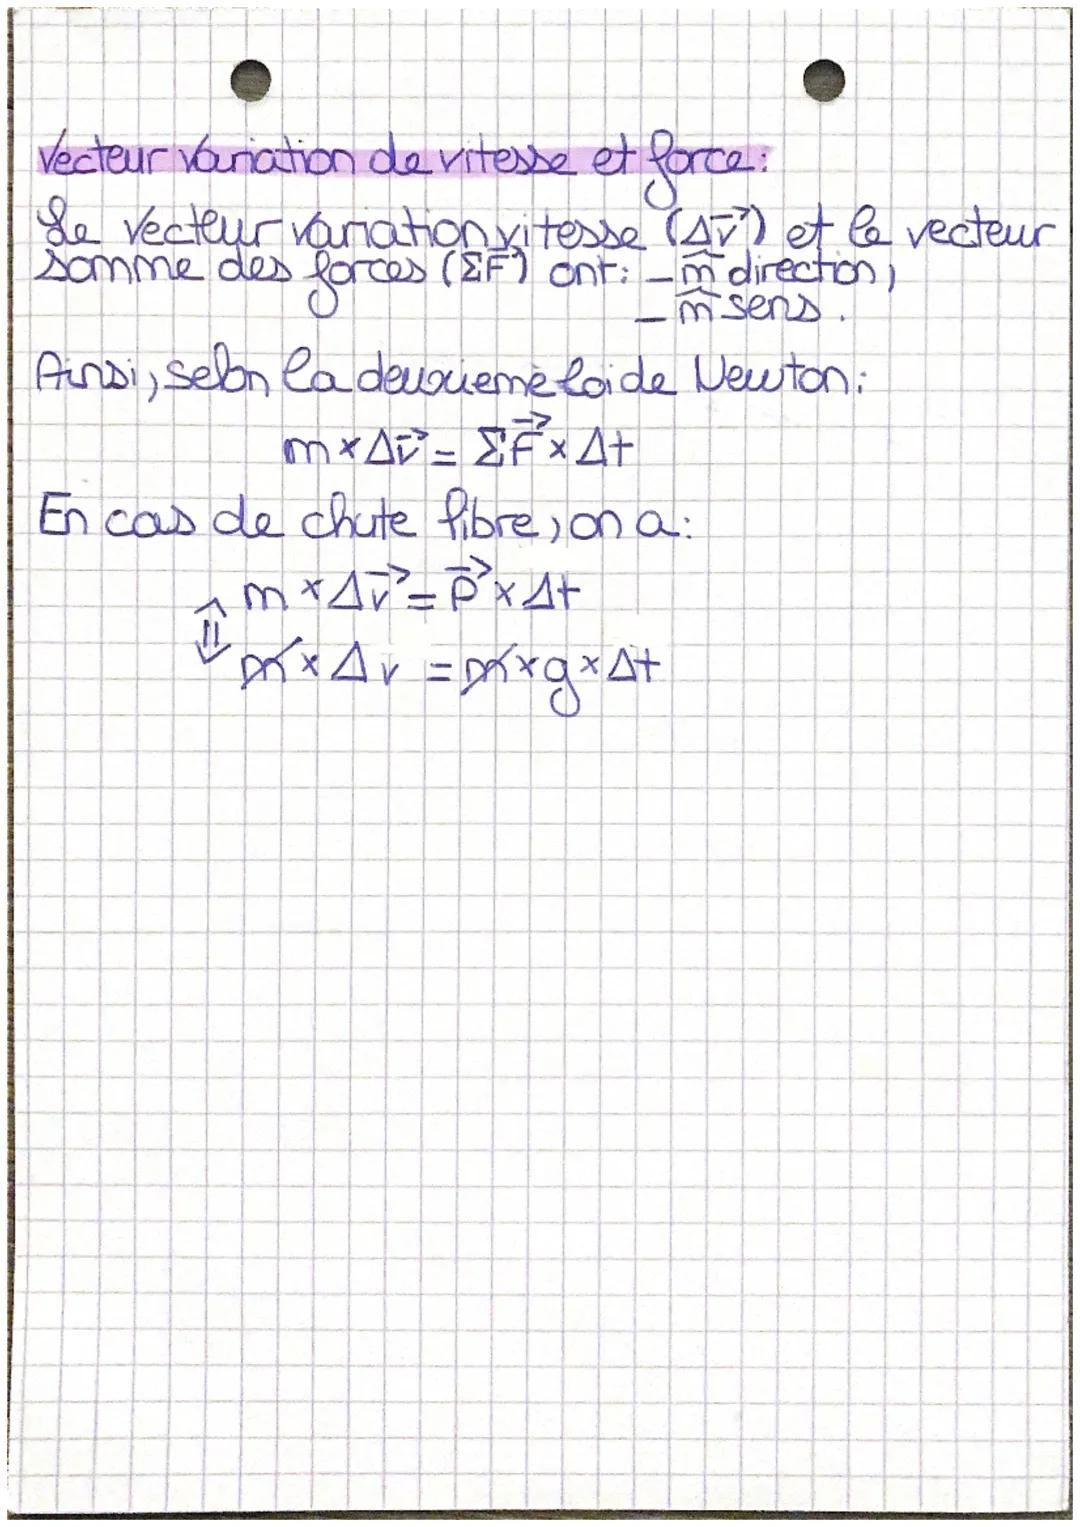 Vecteur variation de vitesse et force:
Le vecteur variation vitesse (Δv⃗) et le vecteur
somme des forces (ΣF⃗) ont: - m̂ direction,
- m̂ sens.
Ainsi, selon la deuxieme loi de Newton:
m × Δv⃗ = ΣF⃗ × Δt
En cas de chute libre, on a:
m × Δv⃗ = P⃗ × Δt
⇕ m̸ × Δv = m̸ × g × Δt